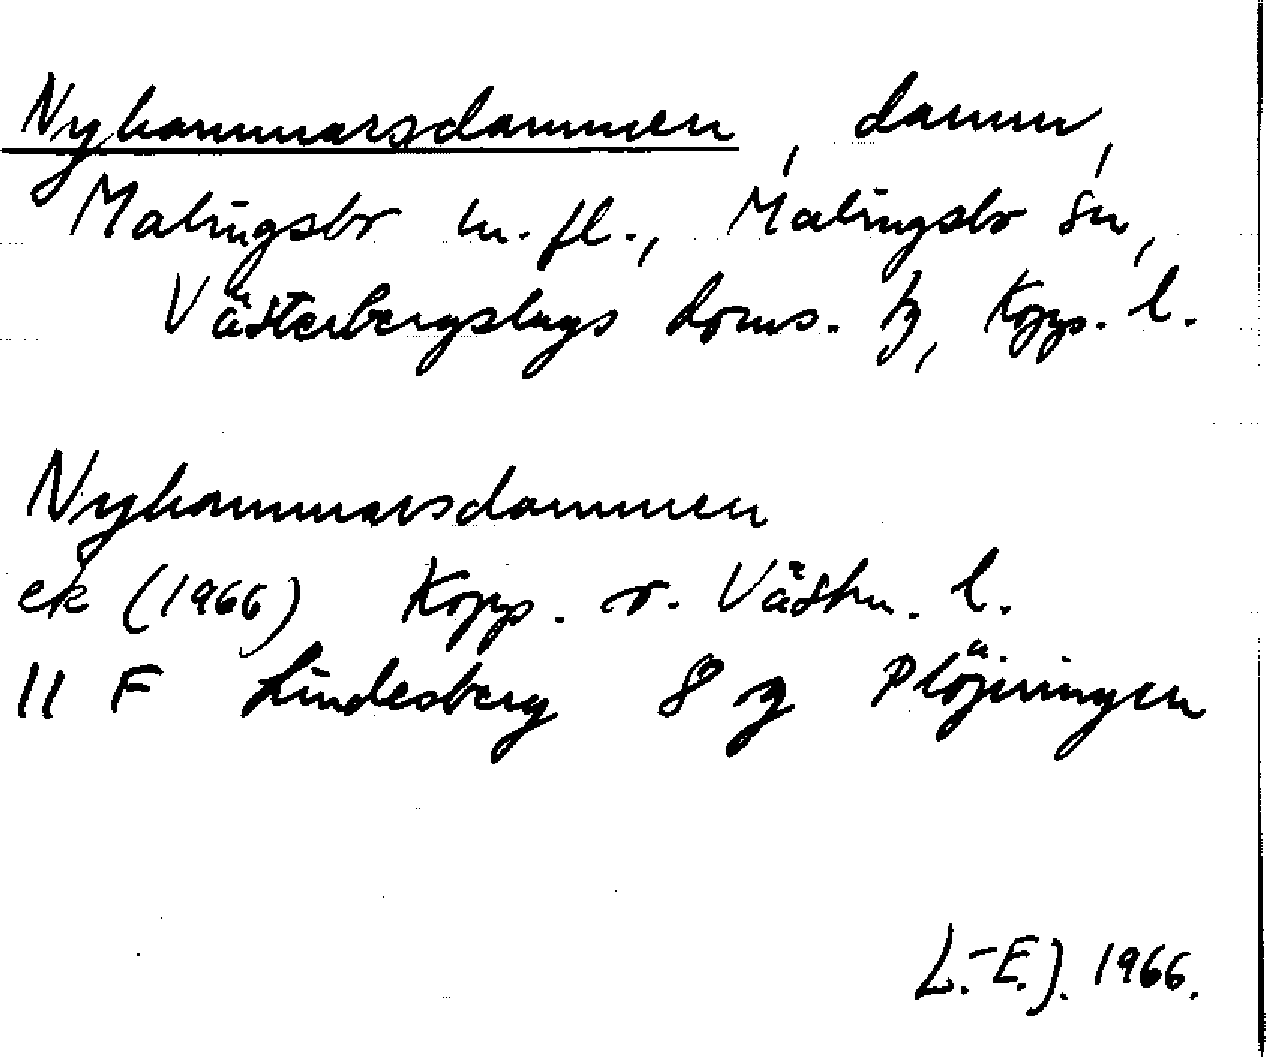 Nyhammarsdammen, damm,
Malingsbo m.fl., Malingsbo sn,
Västerbergslags doms. tg, Kopp. l.
Nyhammarsdammen
ek (1966) Kopp. o. Västm. l.
11 F Lindesberg 8 g Plöjningen
L.-E.J. 1966.